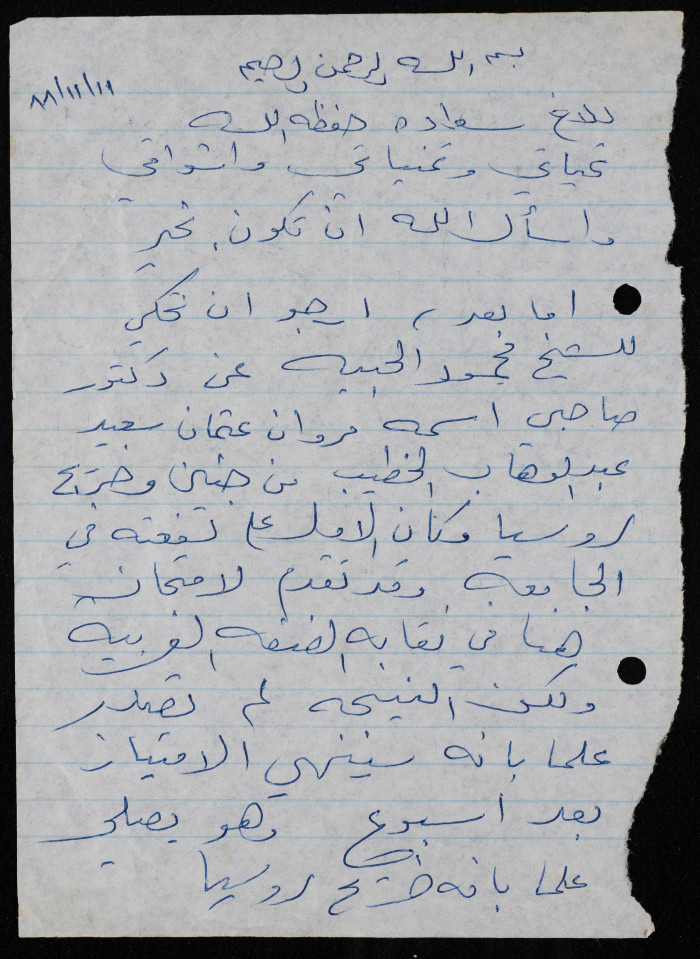 بسم الله الرحمن الرحيم
٨٨/١١/١٩
للاخ سعاده حفظه الله
تحياتي وتمنياتي واشواقي
واسأل الله ان تكون بخير
اما بعد، ارجو ان تحكي
للشيخ محمود عن دكتور
صاحبي اسمه مروان عثمان سعيد
عبد الوهاب الخطيب من جنين وخريج
روسيا وكان الاول على دفعته في
الجامعه وقد تقدم لامتحان
هنا في نقابه الضفه الغربيه
ولكن النتيجه لم تصدر
علما بانه سينهي الامتياز
بعد اسبوع وهو يصلي
علما بانه خريج روسيا